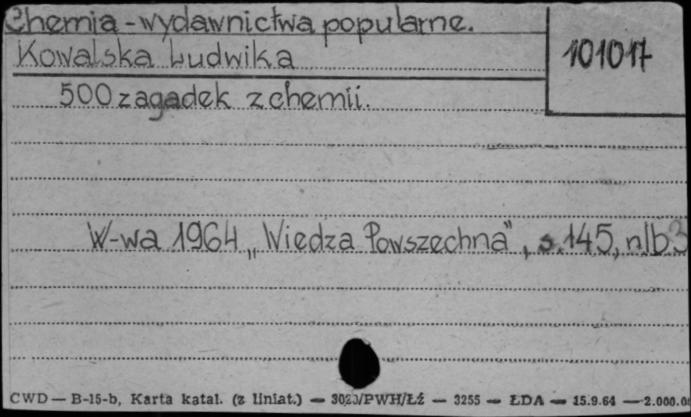 Chemia - wydawnictwa popularne.
Kowalska Ludwika
101017
500 zagadek z chemii.
W-wa 1964 „Wiedza Powszechna", s. 145, nlb 3
CWD — B-15-b, Karta katal. (z liniat.) — /PWH/ŁŹ — 3255 — ŁDA — 15.9.64 — 2.000.0